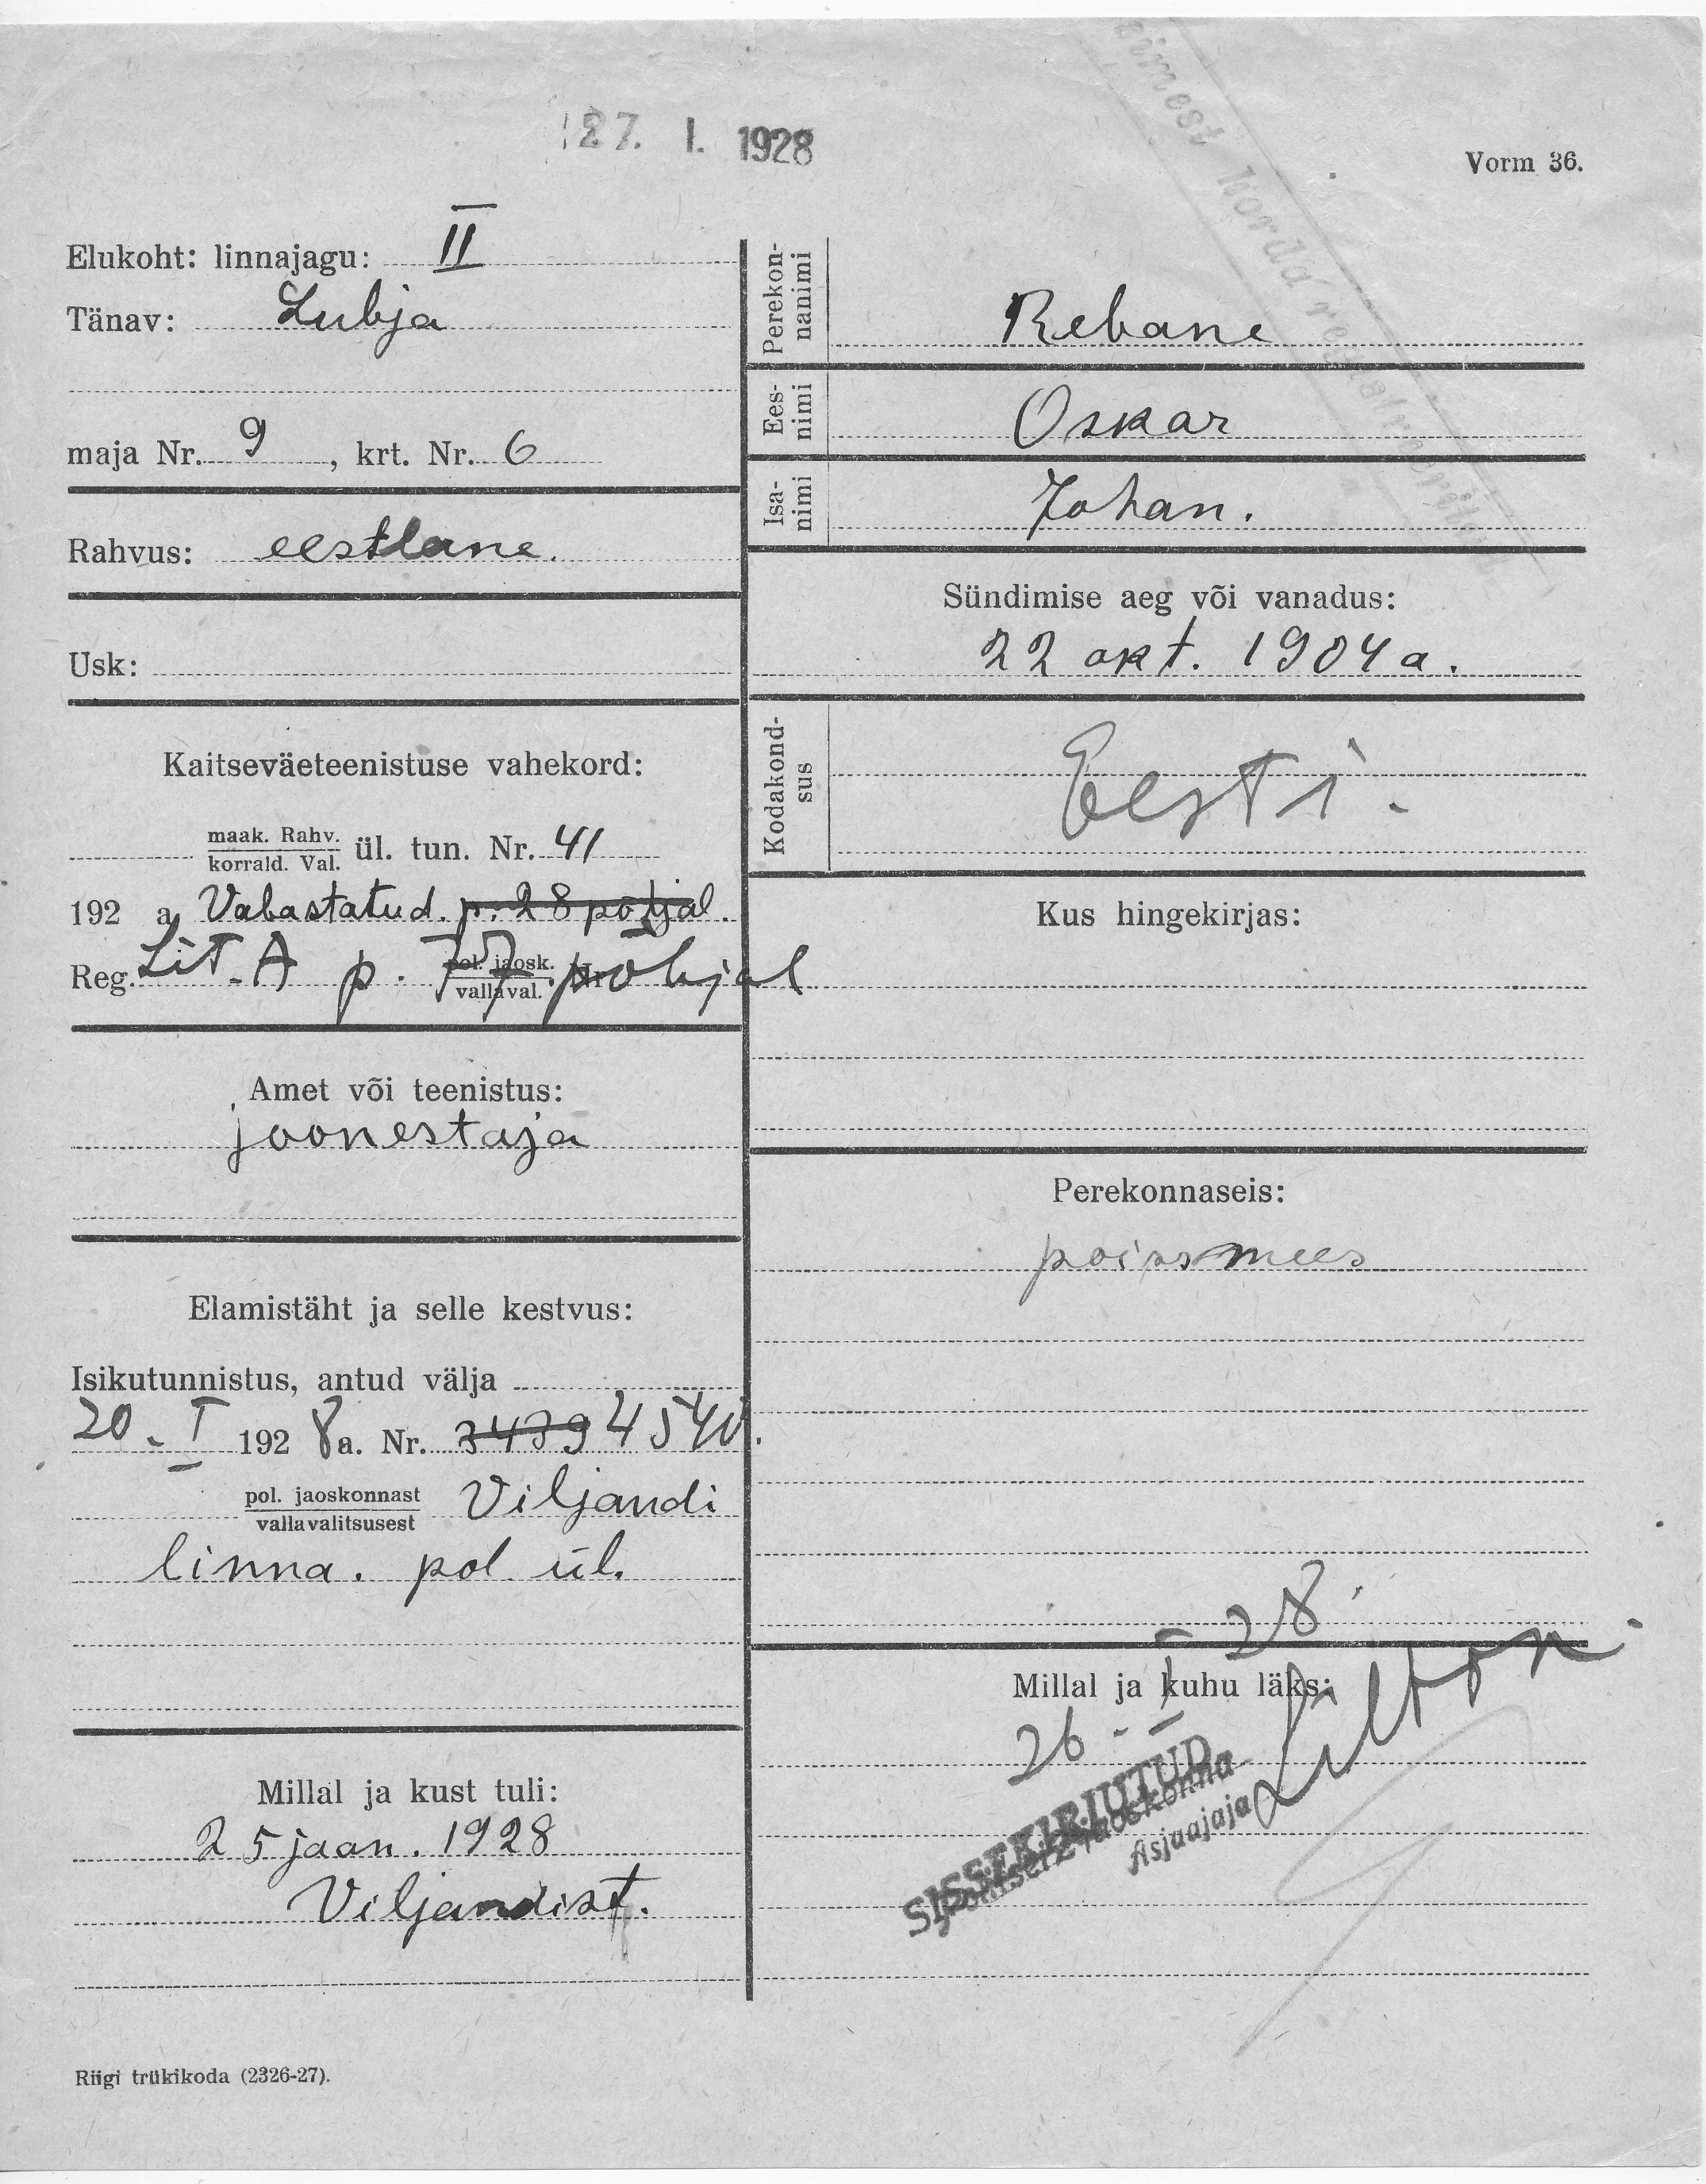 27. I. 1928
Vorm 36.
Elukoht: linnajagu: II
Tänav: Lubja
maja Nr. 9, krt. Nr. 6
Rahvus: eestlane.
Usk:
Kaitseväeteenistuse vahekord:
maak. Rahv.
korrald. Val. ül. tun. Nr. 41
192 a. Vabastatud. p. 28 põhjal.
Reg. Lit. A p. 77 põhjal
pol. jaosk. Nr
vallaval.
Amet või teenistus:
joonestaja
Elamistäht ja selle kestvus:
Isikutunnistus, antud välja
20. I 1928 a. Nr. 3479 4540.
pol. jaoskonnast Viljandi
vallavalitsusest
linna. pol. ül.
Millal ja kust tuli:
25 jaan. 1928
Viljandist.
Riigi trükikoda (2326-27).
Perekon-
nanimi
Rebane
Ees-
nimi
Oskar
Isa-
nimi
Johan.
Sündimise aeg või vanadus:
22 okt. 1904 a.
Kodakond-
sus
Eesti.
Kus hingekirjas:
Perekonnaseis:
poissmees
Millal ja kuhu läks:
26. I 28.
SISSEKIRJUTUD
jaoskonna
Asjaajaja